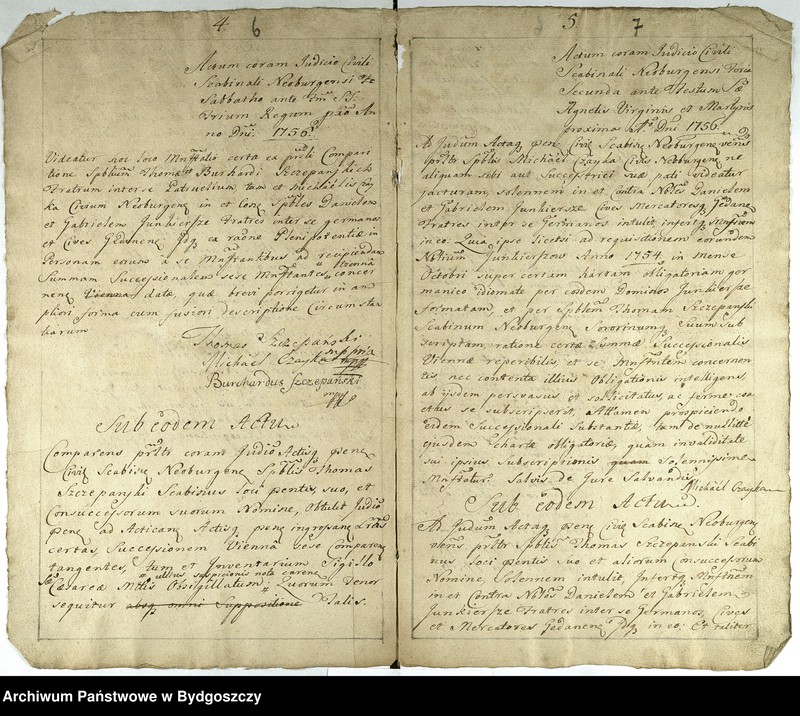 4 6
Actum coram Judicio Civili
Scabinali Neoburgensi Fr
Sabbatho ante Fm̃ SS.
Trium Regum px̃o An
no Dni: 1756.
Videatur hoc loco Mnftãtio certa ea p̃rtli Compari
tione Spblium Thomæ et Burhardi Szczepanskich
Fratrum inter se Patruelium, tum et Michaelis Czay
ka Civium Neoburgenẽ in et Cone Spbles Danielem
et Gabrielem Junkierfze Fratres inter se germanos
et Cives Gedanenẽ Idq ea raõne Plenipotentiæ in
Personam eorum a se Mnftantibus ad recipiendam
Summam Successionalem sese Mnftantes, Viennâ concer
nenẽ Vienna datæ, quæ brevi porrigetur in am
pliori forma cum fusiori descriptione Circumstan
tiarum
Thomas Szczepański
Michaël Czayka mppria
Burchardus Szczepański
mpp
Sub eodem Actu
Comparens p̃rsltr coram Judio Actisq penẽ
Civili Scabinẽ Neoburgenẽ Spblis Thomas
Szczepanski Scabinus loci p̃entis, suo, et
Consuccessorum suorum Nomine, Obtulit Judio
p̃enẽ ad Acticanẽ Actisq p̃enẽ ingrossanẽ Lrãs
certas, Successionem Viennâ sese Comparen
tangentes, tum et Inventarium Sigillo
Sæ Cæsareæ Mttis Obsigillatum, ullius suspicionis nota carens Quorum Tenor
sequitur absq omni Suppositione Talis.
5 7
Actum coram Judicio Civili
Scabinali Neoburgensi Feria
Secunda ante Festum Sæ
Agnetis Virginis et Martyris
proxima Ao Dni 1756.
Ad Judum Actaq p̃enẽ Civilẽ Scabinẽ Neoburgenẽ veniẽs
p̃rsltr Spblis Michaël Czayka Civis Neoburgenẽ ne
aliquam sibi aut Successtrici suæ pati videatur
jacturam, solennem in et Contra Nobles Danielem
et Gabrielem Junkierfze Cives Mercatoresq Gedanẽ
Fratres inter se Germanos intulit, infertq Mnftõnem
in eo: Quia ipse licetsi ad requisitionem eorundem
Nblium Junkierfzow Anno 1754 in mense
Octobri super certam hartam obligatoriam ger
manico idiomate per eosdem Dominos Junkierfze
formatam, et per Spblem Thomam Szczepanski
Scabinum Neoburgenẽ Sororinumq suum sub
scriptam, ratione certæ Summæ Successionalis
Viennæ reperibilis, et se Mnftantem concernen
tis, nec contenta illius Obligationis intelligens,
ab ijsdem persuasus et sollicitatus ac ferme coa
ctus se subscripserit, Attamen prospiciendo
eidem Successionali Substantiæ, tam de nullitate
ejusdem Chartæ obligatoriæ, quam invaliditate
sui ipsius subscriptionis quam Solennissime
Mnftatur. Salvis de Jure Salvandis
Michaël Czayka
Sub eodem Actu
Ad Judum Actaq p̃enẽ Civilẽ Scabinẽ Neoburgenẽ
veniẽs p̃rsltr Spblis Thomas Szczepanski Scabi
nus loci p̃entis suo et aliorum consuccessorum
Nomine, solennem intulit, Infertq Mnftõnem
in et Contra Nobles Danielem et Gabrielem
Junkierfze Fratres inter se Germanos, Cives
et Mercatores Gedanenẽ Idq in eo: Et taliter
Archiwum Państwowe w Bydgoszczy